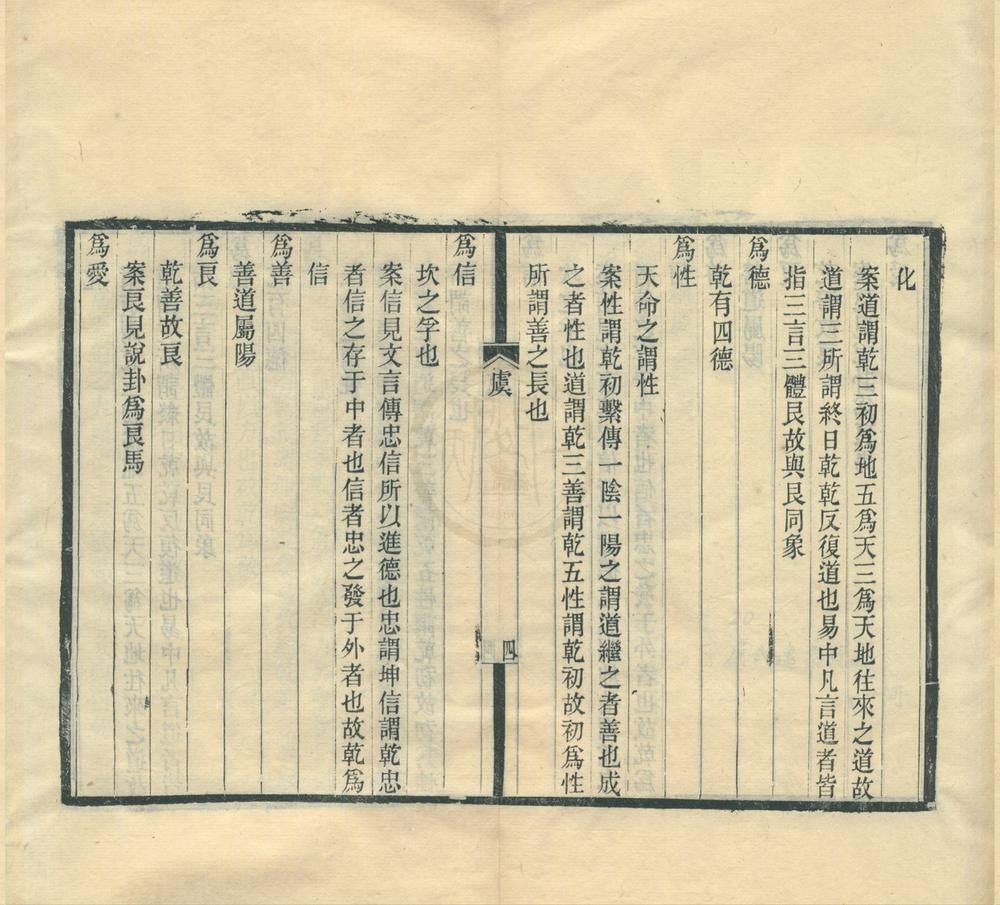 化
案道謂乾三初爲地五爲天三爲天地往來之道故
道謂三所謂終日乾乾反復道也易中凡言道者皆
指三言三體艮故與艮同象
爲德
乾有四德
爲性
天命之謂性
案性謂乾初繫傳一陰一陽之謂道繼之者善也成
之者性也道謂乾三善謂乾五性謂乾初故初爲性
所謂善之長也
虞
四
爲信
坎之孚也
案信見文言傳忠信所以進德也忠謂坤信謂乾忠
者信之存于中者也信者忠之發于外者也故乾爲
信
爲善
善道屬陽
爲良
乾善故良
案良見說卦爲良馬
爲愛